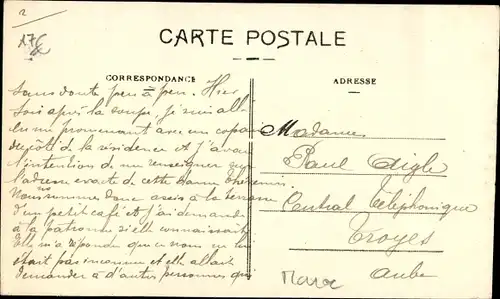 2
CARTE POSTALE
CORRESPONDANCE
ADRESSE
sans doute peu à peu. Hier
soir après la soupe, je suis allé
en me promenant avec un copain
du dépôt de la résidence et j'avais
l'intention de me renseigner sur
l'adresse exacte de cette dame
Nous nous sommes donc assis à la terrasse
d'un petit café et j'ai demandé
à la patronne si elle connaissait
Elle m'a répondu que ce nom ne lui
était pas inconnu et elle allait
demander à d'autres personnes qui
Madame
Paul Aigle
Central Téléphonique
Troyes
Aube